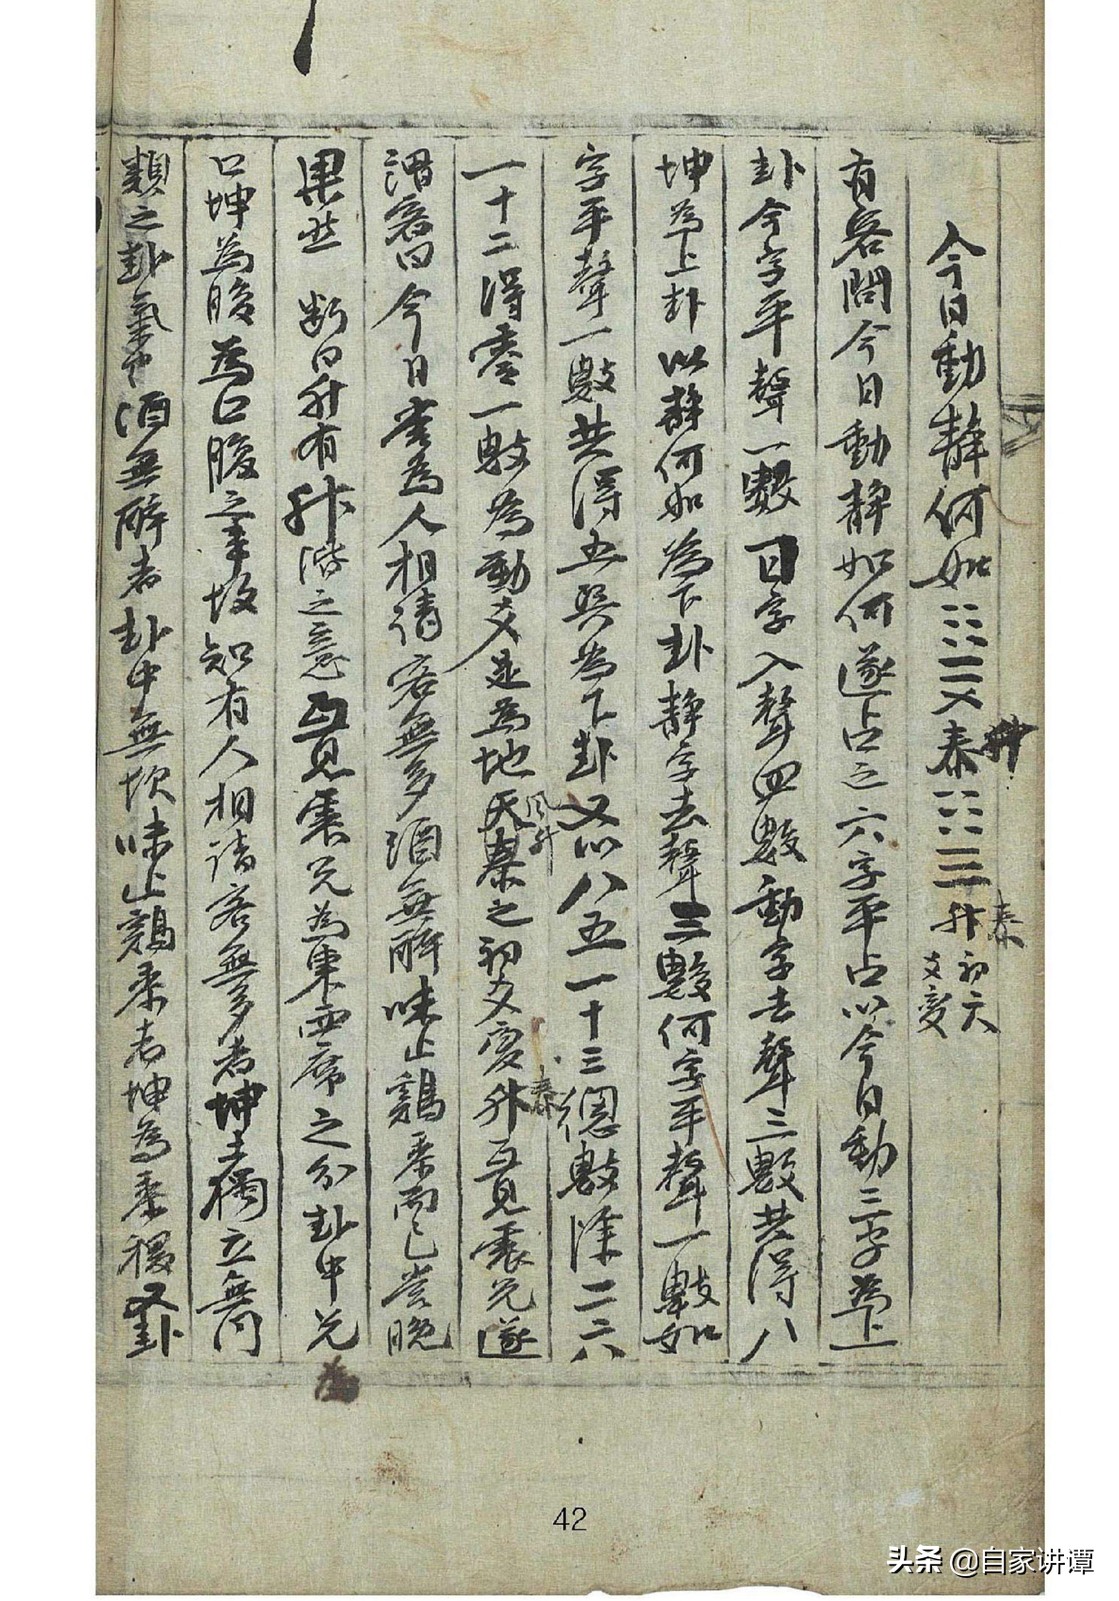 今日動靜何如 泰 升 升 泰 初六爻變
有客問今日動靜如何遂占之六字平占以今日動三字為上
卦今字平聲一數日字入聲四數動字去聲三數共得八
坤為上卦以靜何如為下卦靜字去聲三數何字平聲一數如
字平聲一數共得五巽為下卦又以八五一十三總數除二六
一十二得零一數為動爻是為地天泰風升之初爻變升泰互見震兌遂
謂客曰今日當為人相請客無多酒無醉味止鷄黍而已當晚
果然 斷曰升有升階之意互見震兌為東西席之分卦中兌為
口坤為腹為口腹之事故知有人相請客無多者坤土獨立無同
類之卦氣中酒無醉者卦中無坎味止鷄黍者坤為黍稷又卦
42
头条 @自家讲谭